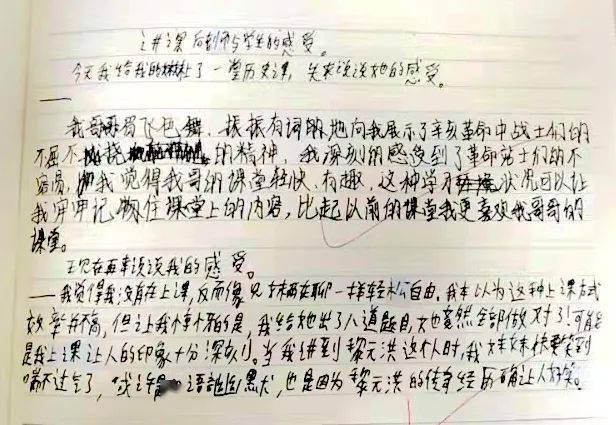 讲课后到师与学生的感受。
今天我给我的妹妹上了一堂历史课，先来说说她的感受。
——
我哥哥眉飞色舞、振振有词的地向我展示了辛亥革命中战士们的
不屈不挠的精神，我深刻的感受到了革命战士们的不
容易，我觉得我哥的课堂轻快、有趣，这种学习状况可以让
我牢牢记住课堂上的内容，比起以前的课堂我更喜欢我哥哥的
课堂。
现在再来说说我的感受。
——我觉得我没有在上课，反而像兄妹在聊一样轻松自由。我本以为这种上课方式
效率并不高，但让我惊讶的是，我给她出了八道题目，她竟然全部做对了！可能
是我上课让人的印象十分深刻。当我讲到黎元洪这个人时，我妹妹快要笑到
喘不过气了，或许是语黑犬，也是因为黎元洪的传奇经历确让人好笑。